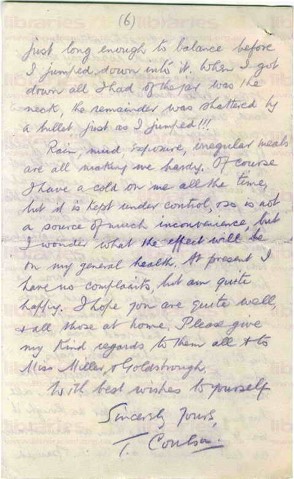 (6)
just long enough to balance before
I jumped down into it. When I got
down all I had of the jar was the
neck, the remainder was shattered by
a bullet just as I jumped!!!
Rain, mud exposure, irregular meals
are all making me hardy. Of course
I have a cold on me all the time,
but it is kept under control, & so is not
a source of much inconvenience, but
I wonder what the effect will be
on my general health. At present I
have no complaints, but am quite
happy. I hope you are quite well,
& all those at home. Please give
my kind regards to them all & to
Miss Miller, & Goldsbrough.
With best wishes to yourself
Sincerely Yours,
T. Coulson.